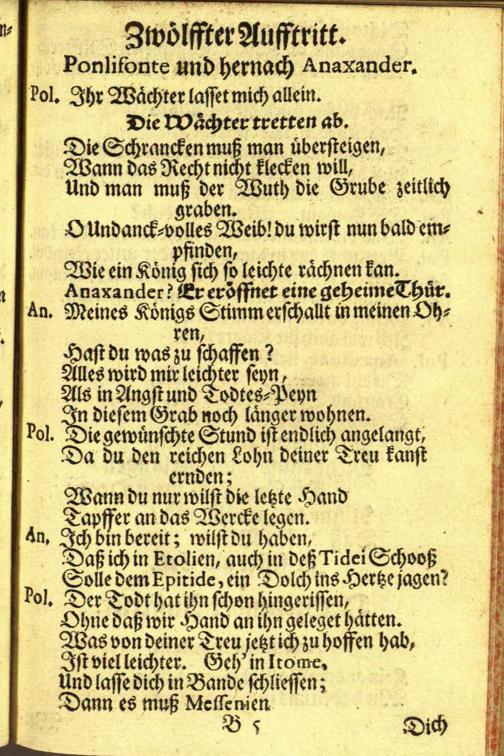 Zwölffter Aufftritt.
Ponlifonte und hernach Anaxander.
Pol. Ihr Wächter lasset mich allein.
Die Wächter tretten ab.
Die Schrancken muß man übersteigen,
Wann das Recht nicht klecken will,
Und man muß der Wuth die Grube zeitlich
graben.
O Undanck-volles Weib! du wirst nun bald em-
pfinden,
Wie ein König sich so leichte rächnen kan.
Anaxander? Er eröffnet eine geheime Thür.
An. Meines Königs Stimm erschallt in meinen Oh-
ren,
Hast du was zu schaffen?
Alles wird mir leichter seyn,
Als in Angst und Todtes-Peyn
In diesem Grab noch länger wohnen.
Pol. Die gewünschte Stund ist endlich angelangt,
Da du den reichen Lohn deiner Treu kanst
ernden;
Wann du nur wilst die letzte Hand
Tapffer an das Wercke legen.
An, Ich bin bereit; wilst du haben,
Daß ich in Etolien, auch in deß Tidei Schooß
Solle dem Epitide, ein Dolch ins Hertze jagen?
Pol. Der Todt hat ihn schon hingerissen,
Ohne daß wir Hand an ihn geleget hätten.
Was von deiner Treu jetzt ich zu hoffen hab,
Ist viel leichter. Geh' in Itome,
Und lasse dich in Bande schliessen;
Dann es muß Messenien
B 5 Dich